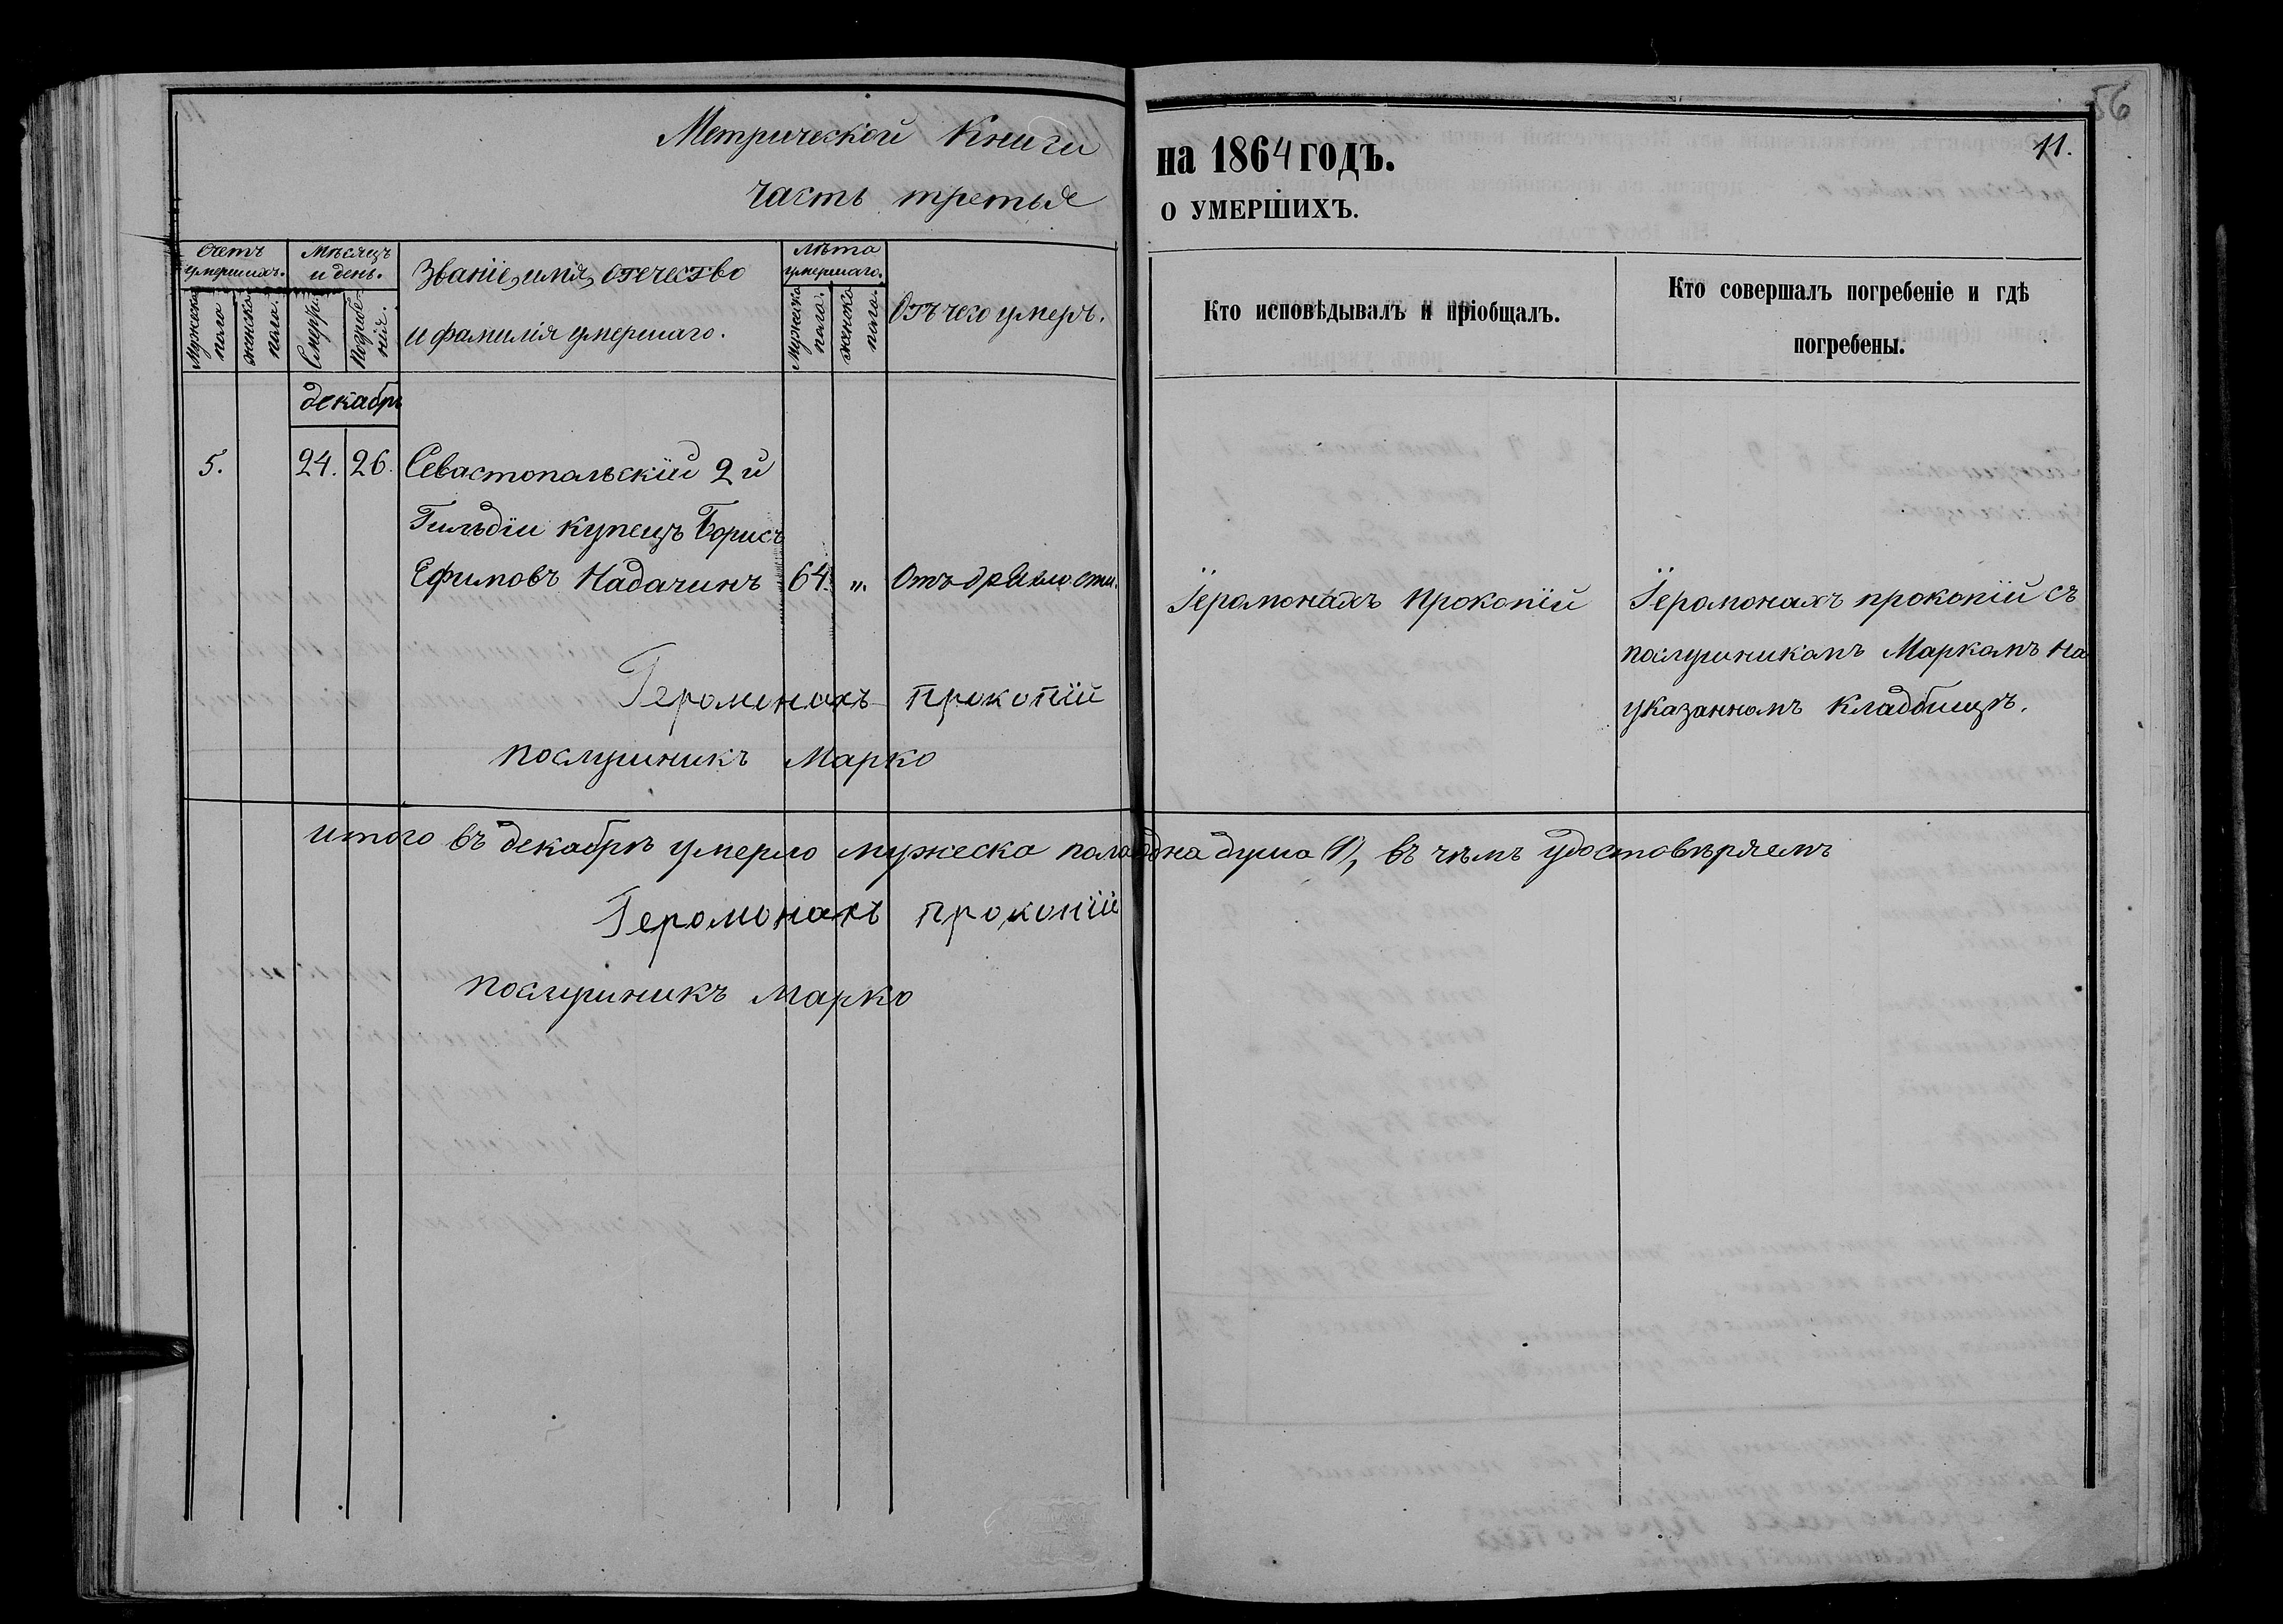 56
11.
Метрической Книги
на 1864 годъ.
часть третья
о умершихъ.
Счетъ умершихъ.
Мѣсяцъ и день.
Званіе, имя, отечество
и фамилія умершаго.
Лѣта умершаго.
Отъ чего умеръ.
Кто исповѣдывалъ и пріобщалъ.
Кто совершалъ погребеніе и гдѣ
погребены.
Мужеска пола
женска пола.
Смерти.
Погребенія.
Мужеска пола.
женска пола.
декабрь
5. 24. 26. Севастопольскій 2й
Гильдіи купецъ Борисъ
Ефимовъ Надачинъ 64. „ Отъ дряхлости.
Їеромонахъ Прокопїй
Їеромонахъ прокопїй съ
послушникомъ Маркомъ на
указанномъ кладбищѣ.
Їеромонахъ прокопїй
послушникъ Марко
итого въ декабрѣ умерло мужеска пола одна душа (1), въ чѣмъ удостовѣряемъ
Їеромонахъ прокопїй
послушникъ Марко